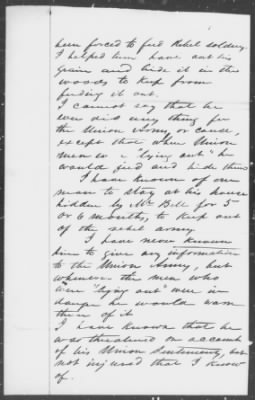 been forced to feed Rebel soldiers.
I helped him haul out his
grain and hide it in the
woods to keep from
finding it out.
I cannot say that he
ever did any thing for
the Union Army or cause,
except that when Union
men were "lying out" he
would feed and hide them
I have known of one
man to stay at his house
hidden by Mr Bell for 5
or 6 months, to keep out
of the rebel army.
I have never known
him to give any information
to the Union Army, but
whenever the men who
were "lying out" were in
danger he would warn
them of it
I have known that he
was threatened on account
of his Union Sentiments, but
not injured that I know
of.